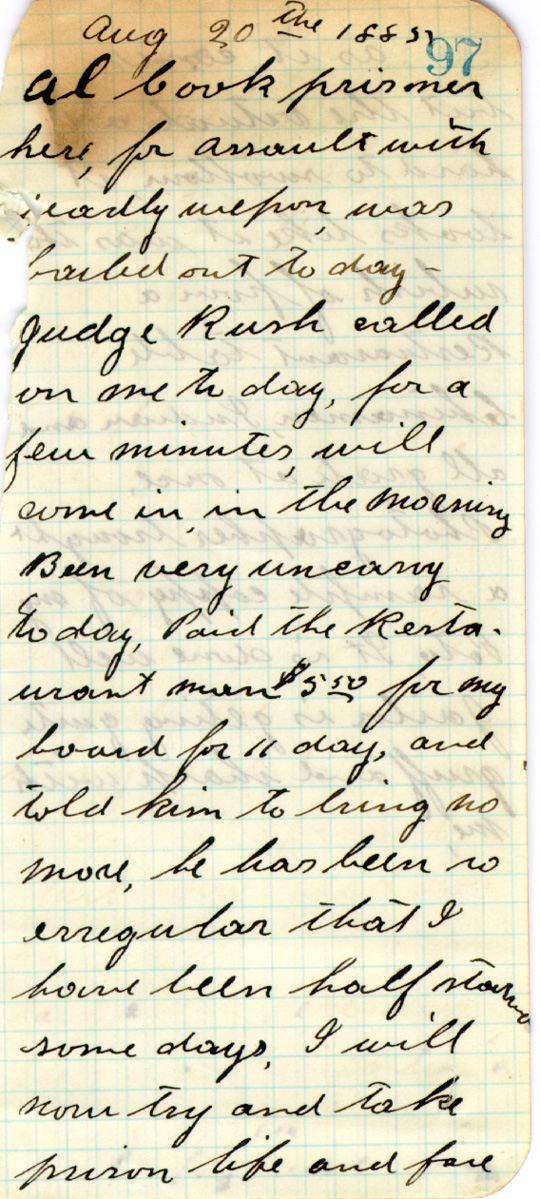 Aug 20the 1885
97
al book prisner
here, for assault with
deadly wepon, was
bailed out to day -
Judge Rush called
on me to day, for a
few minutes, will
come in, in the morning
Been very uneasy
to day, Paid the Resta-
urant man $5 50 for my
board for 11 day, and
told him to bring no
more, he has been so
erregular that I
have been half starved
some days, I will
now try and take
prison life and fare